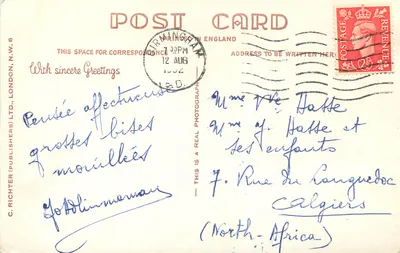 POST CARD
PRINTED IN ENGLAND
THIS SPACE FOR CORRESPONDENCE
ADDRESS TO BE WRITTEN HERE
With sincere Greetings
BIRMINGHAM
PM
12 AUG
1952
POSTAGE
REVENUE
Pensée affectueuse
grosses bises
mouillées
Mme Vve Hatte
Mme J. Hatte et
ses enfants
7. Rue du Languedoc
Algiers
(North-Africa)
C. RICHTER (PUBLISHERS) LTD., LONDON, N.W.6
THIS IS A REAL PHOTOGRAPH